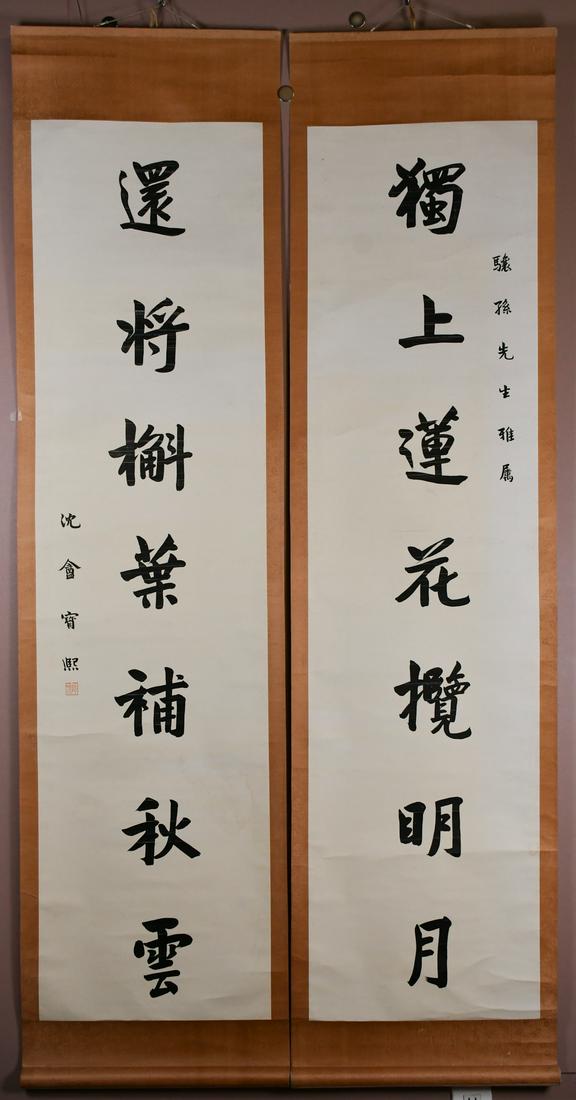 驤孫先生雅属
獨上蓮花攬明月
還将槲葉補秋雲
沈盦寶熙